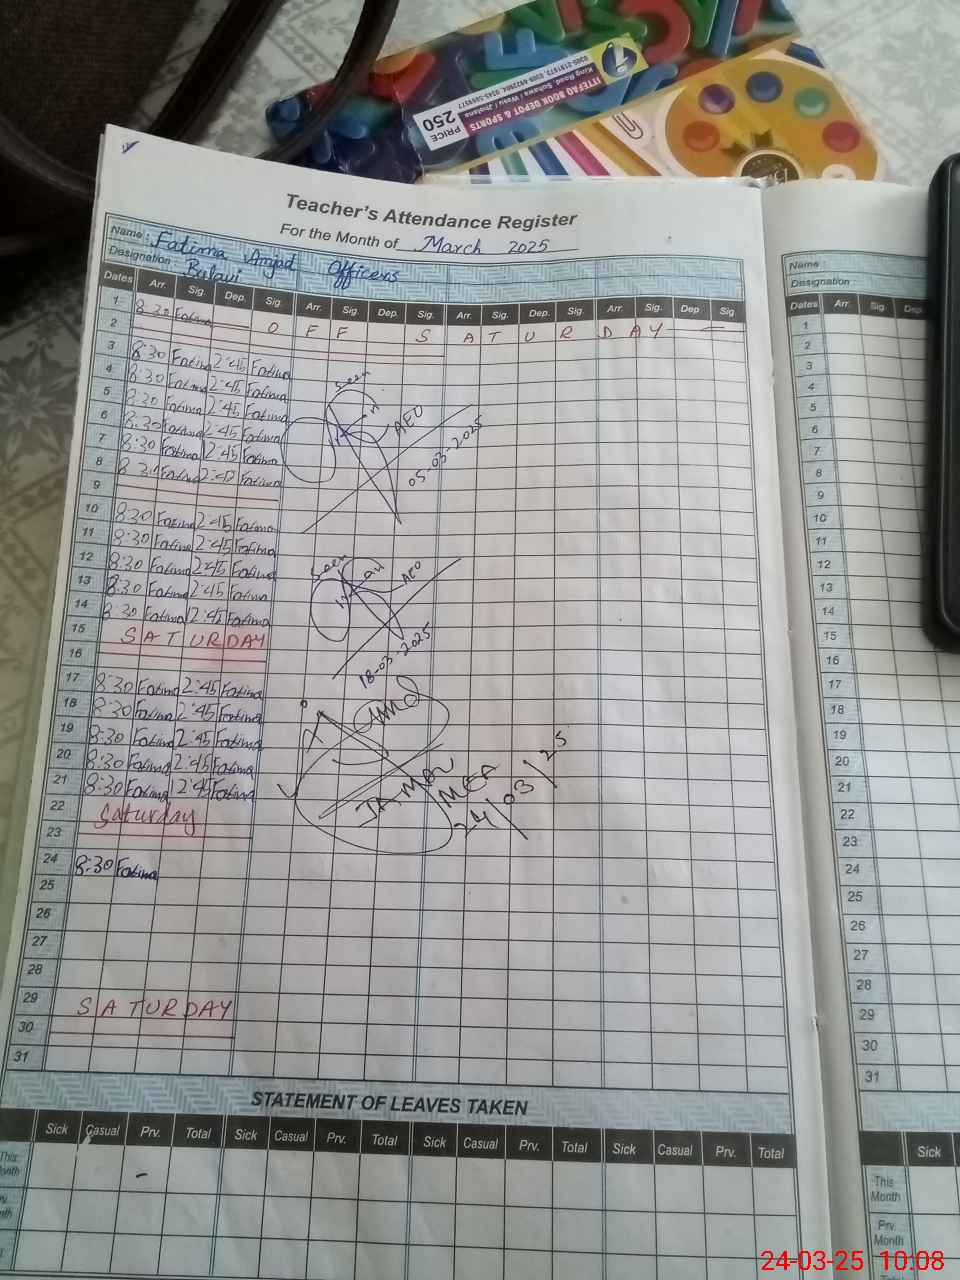 ITTEFAQ BOOK DEPOT & SPORTS
PRICE
250
Teacher's Attendance Register
For the Month of March 2025
Name: Fatima Amjad Officers
Designation:
Dates Arr. Sig. Dep. Sig. Arr. Sig. Dep. Sig. Arr. Sig. Dep. Sig. Arr. Sig. Dep Sig
1 8:30 Fatima — O F F S A T U R D A Y —
2
3 8:30 Fatima 2:45 Fatima
4 8:30 Fatima 2:45 Fatima
5 8:30 Fatima 2:45 Fatima
6 8:30 Fatima 2:45 Fatima
7 8:30 Fatima 2:45 Fatima
8 Fatima Fatima
9
Seen
AEO
05-03-2025
10 8:30 Fatima 2:45 Fatima
11 8:30 Fatima 2:45 Fatima
12 8:30 Fatima 2:45 Fatima
13 8:30 Fatima 2:45 Fatima
14 8:30 Fatima 2:45 Fatima
15 SATURDAY
16
Seen
AEO
18-03-2025
17 8:30 Fatima 2:45 Fatima
18 8:30 Fatima 2:45 Fatima
19 8:30 Fatima 2:45 Fatima
20 8:30 Fatima 2:45 Fatima
21 8:30 Fatima 2:45 Fatima
22 Saturday
23
JAMAL
MEA
24/03/25
24 8:30 Fatima
25
26
27
28
29 SATURDAY
30
31
STATEMENT OF LEAVES TAKEN
Sick Casual Prv. Total Sick Casual Prv. Total Sick Casual Prv. Total Sick Casual Prv. Total
This
-
Name :
Designation
Dates Arr. Sig. Dep.
1
2
3
4
5
6
7
8
9
10
11
12
13
14
15
16
17
18
19
20
21
22
23
24
25
26
27
28
29
30
31
Sick
This
Month
Prv.
Month
24-03-25 10:08